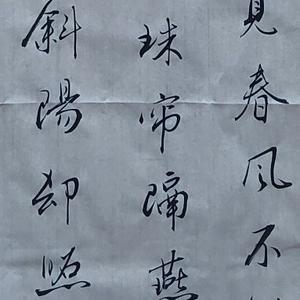 見春風不
珠帘隔燕
斜陽却照